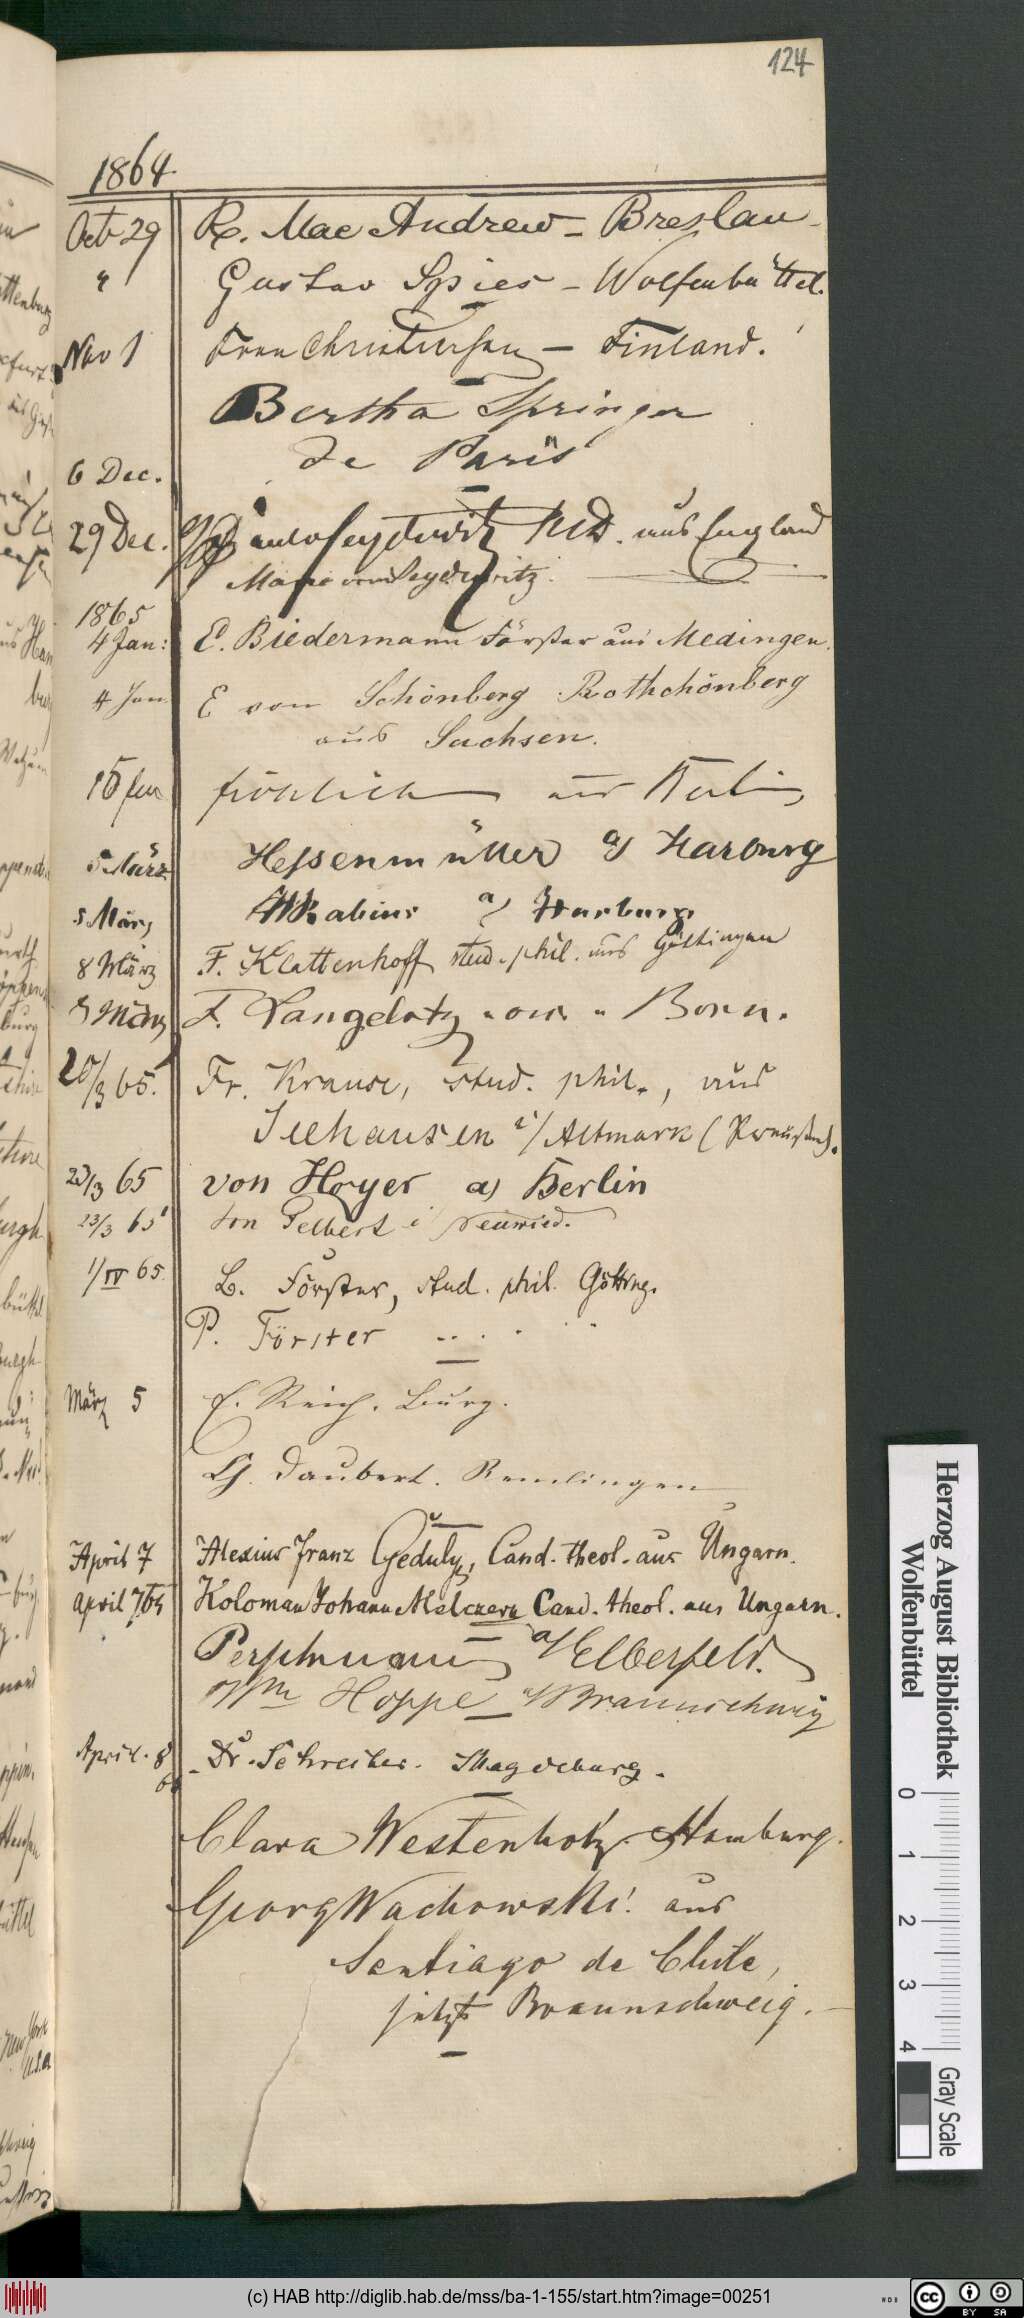 124
1864.
Oct 29 R. Mac Andrew – Breslau
" Gustav Spies – Wolfenbüttel.
Nov 1 Frau Christiersen – Finland.
Bertha Springer
6 Dec. de Paris
29 Dec. Seydewitz MD. aus England
Marie von Seydewitz.
1865
4 Jan: E. Biedermann Förster aus Medingen.
4 Jan E von Schönberg Rothschönberg
aus Sachsen.
15 Jan fröhlich aus Berlin
5 März Hessenmüller a/ Harburg
5 März Rabius a/ Harburg
8 März F. Klattenhoff stud. phil. aus Göttingen
8 März F. Langelotz " aus " Bonn.
20/3 65. Fr. Krause, stud. phil., aus
Seehausen i/Altmark (Preußen).
23/3 65 von Hoyer a) Berlin
23/3 65 Neuwied.
1/IV 65. L. Förster, stud. phil. Götting.
P. Förster " " " "
März 5 E. Reich. Burg.
G. Daubert. Remlingen
April 7 Alexius Franz Geduly, Cand. theol. aus Ungarn.
April 7/65 Koloman Johann Melczern Cand. theol. aus Ungarn.
a/Elberfeld.
Wm Hoppe a/Braunschweig
April. 8 Dr. Schreiber. Magdeburg.
65
Clara Westenholz. Hamburg.
Georg Wachowski! aus
Santiago de Chile,
jetzt Braunschweig.
Herzog August Bibliothek
Wolfenbüttel
0 1 2 3 4
Gray Scale
(c) HAB http://diglib.hab.de/mss/ba-1-155/start.htm?image=00251
WDB
cc BY SA